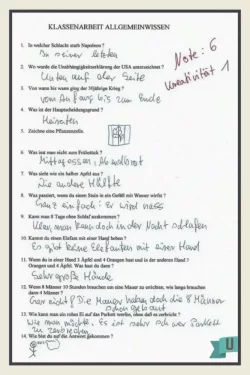 KLASSENARBEIT ALLGEMEINWISSEN
1. In welcher Schlacht starb Napoleon?
In seiner letzten
Note: 6
Kreativität 1
2. Wo wurde die Unabhängigkeitserklärung der USA unterzeichnet?
Unten auf der Seite
3. Von wann bis wann ging der 30jährige Krieg?
vom Anfang bis zum Ende
4. Was ist der Hauptscheidungsgrund?
Heiraten
5. Zeichne eine Pflanzenzelle.
6. Was isst man nicht zum Frühstück?
Mittagessen, Abendbrot
7. Was sieht wie ein halber Apfel aus?
Die andere Hälfte
8. Was passiert, wenn du einen Stein in ein Gefäß mit Wasser wirfst?
Ganz einfach: Er wird nass
9. Kann man 8 Tage ohne Schlaf auskommen?
Klar, man kann doch in der Nacht schlafen
10. Kannst du einen Elefant mit einer Hand heben?
Es gibt keine Elefanten mit einer Hand
11. Wenn du in einer Hand 3 Äpfel und 4 Orangen hast und in der anderen Hand 3
Orangen und 4 Äpfel. Was hast du dann?
Sehr große Hände
12. Wenn 8 Männer 10 Stunden brauchen um eine Mauer zu errichten, wie lange brauchen
dann 4 Männer?
Gar nicht! Die Mauer haben doch die 8 Männer
schon gebaut
13. Wie kann man ein rohes Ei auf das Parkett werfen, ohne daß es zerbricht?
Wie man möchte. Es ist sehr schwer Parkett
zu zerbrechen
14. Wie bist du auf die Antwort gekommen?
U